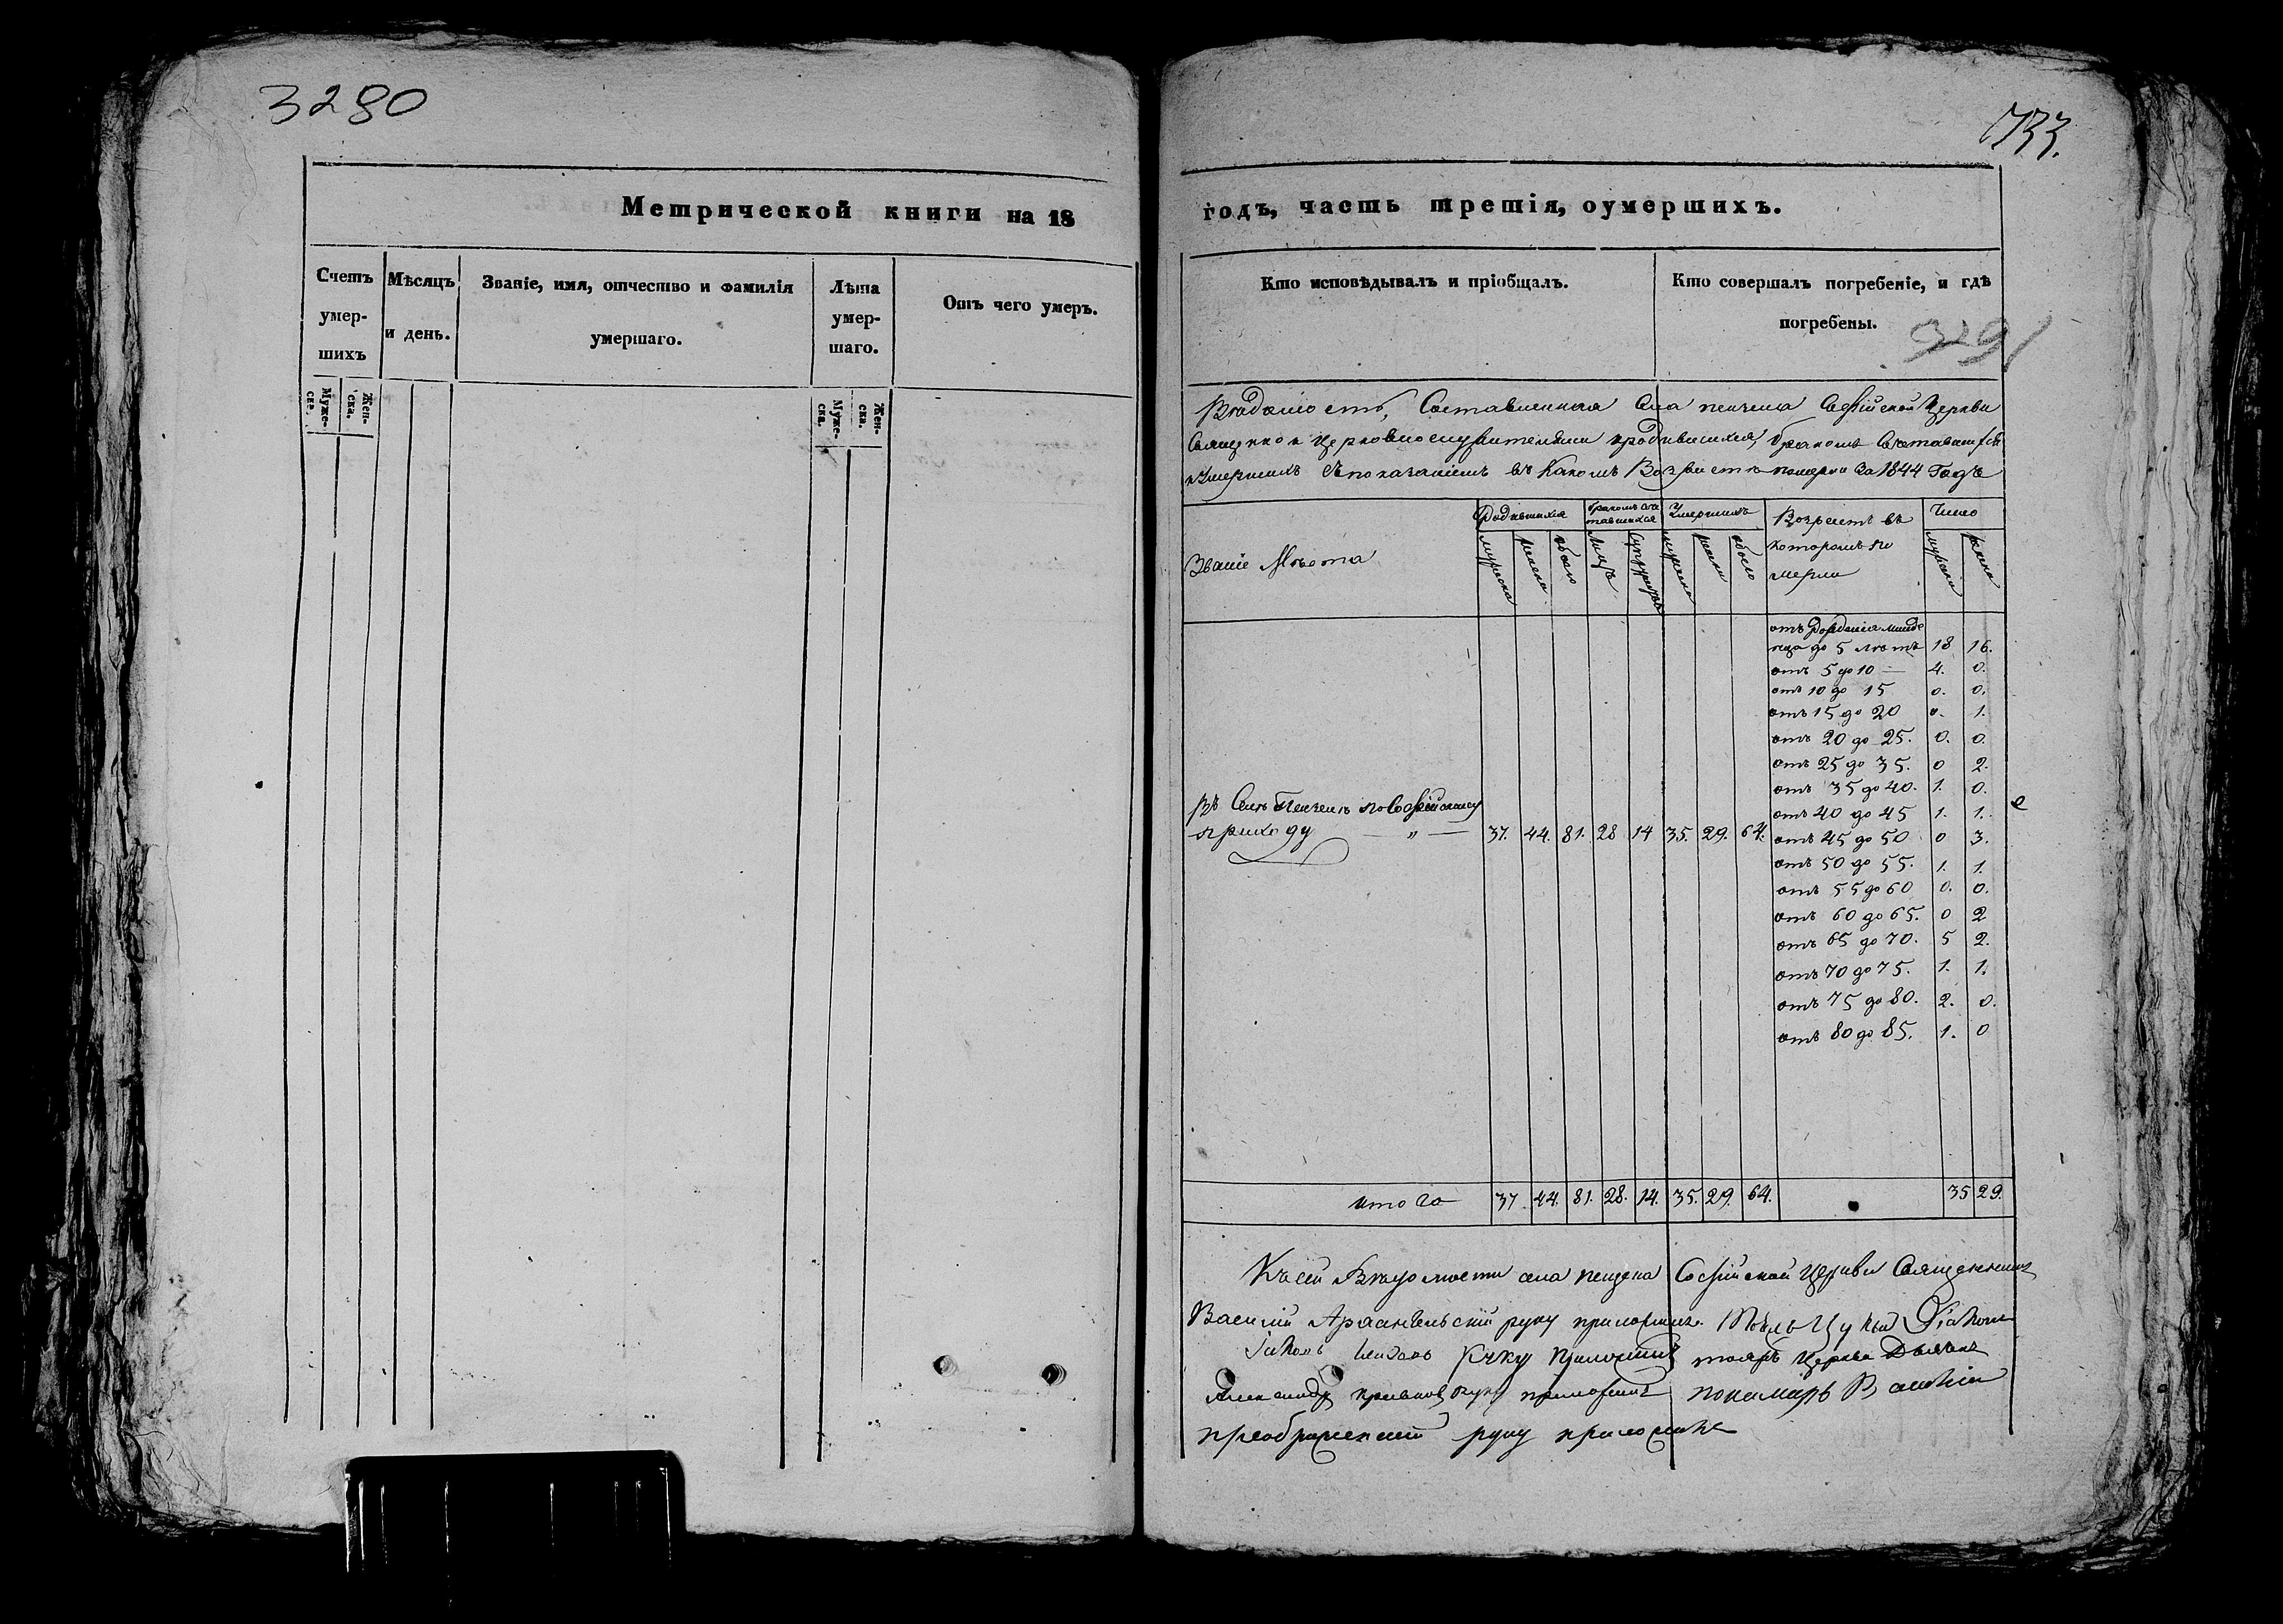 3280
733.
Метрической книги на 18
годъ, часть третія, оумершихъ.
Счетъ умер-шихъ
Мѣсяцъ и день.
Званіе, имя, отчество и фамилія умершаго.
Лѣта умер-шаго.
Отъ чего умеръ.
Муже-ска.
Жен-ска.
Муже-ска.
Жен-ска.
Кто исповѣдывалъ и пріобщалъ.
Кто совершалъ погребеніе, и гдѣ погребены.
Вѣдомость, Составленная Села Софійской Церкви
Священно и церковнослужителями бракомъ
въ какомъ Возрастѣ померли За 1844 Годъ
Званіе Мѣста
Родившихся
Умершихъ
Возрастъ въ которомъ померли
Число
мужеска
женска
обоего
лицъ
супружествъ
мужеска
женска
обоего
мужеска
женска
отъ Рожденія младе
нца до 5 лѣтъ 18 16.
отъ 5 до 10 — 4. 0.
отъ 10 до 15 0. 0.
отъ 15 до 20 0. 1.
отъ 20 до 25. 0. 0.
отъ 25 до 35. 0 2.
отъ 35 до 40. 1. 0.
отъ 40 до 45 1. 1.
Въ Селѣ по Софійскому
приходу — „ — 37. 44. 81. 28 14 35. 29. 64. отъ 45 до 50 0 3.
отъ 50 до 55. 1. 1.
отъ 55 до 60 0. 0.
отъ 60 до 65. 0 2
отъ 65 до 70. 5 2.
отъ 70 до 75. 1. 1.
отъ 75 до 80. 2. 0.
отъ 80 до 85. 1. 0
итого 37 44. 81. 28. 14. 35. 29. 64. 35 29.
Къ сей Вѣдомости села Софійской Церкви Священникъ
Василій Архангельскій руку приложилъ.
руку приложилъ Церкви Дьячекъ
Александр руку приложилъ пономарь Василій
преображенскій руку приложилъ